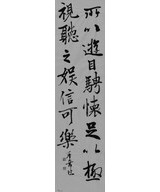 所以遊目騁懷足以極
視聽之娱信可樂